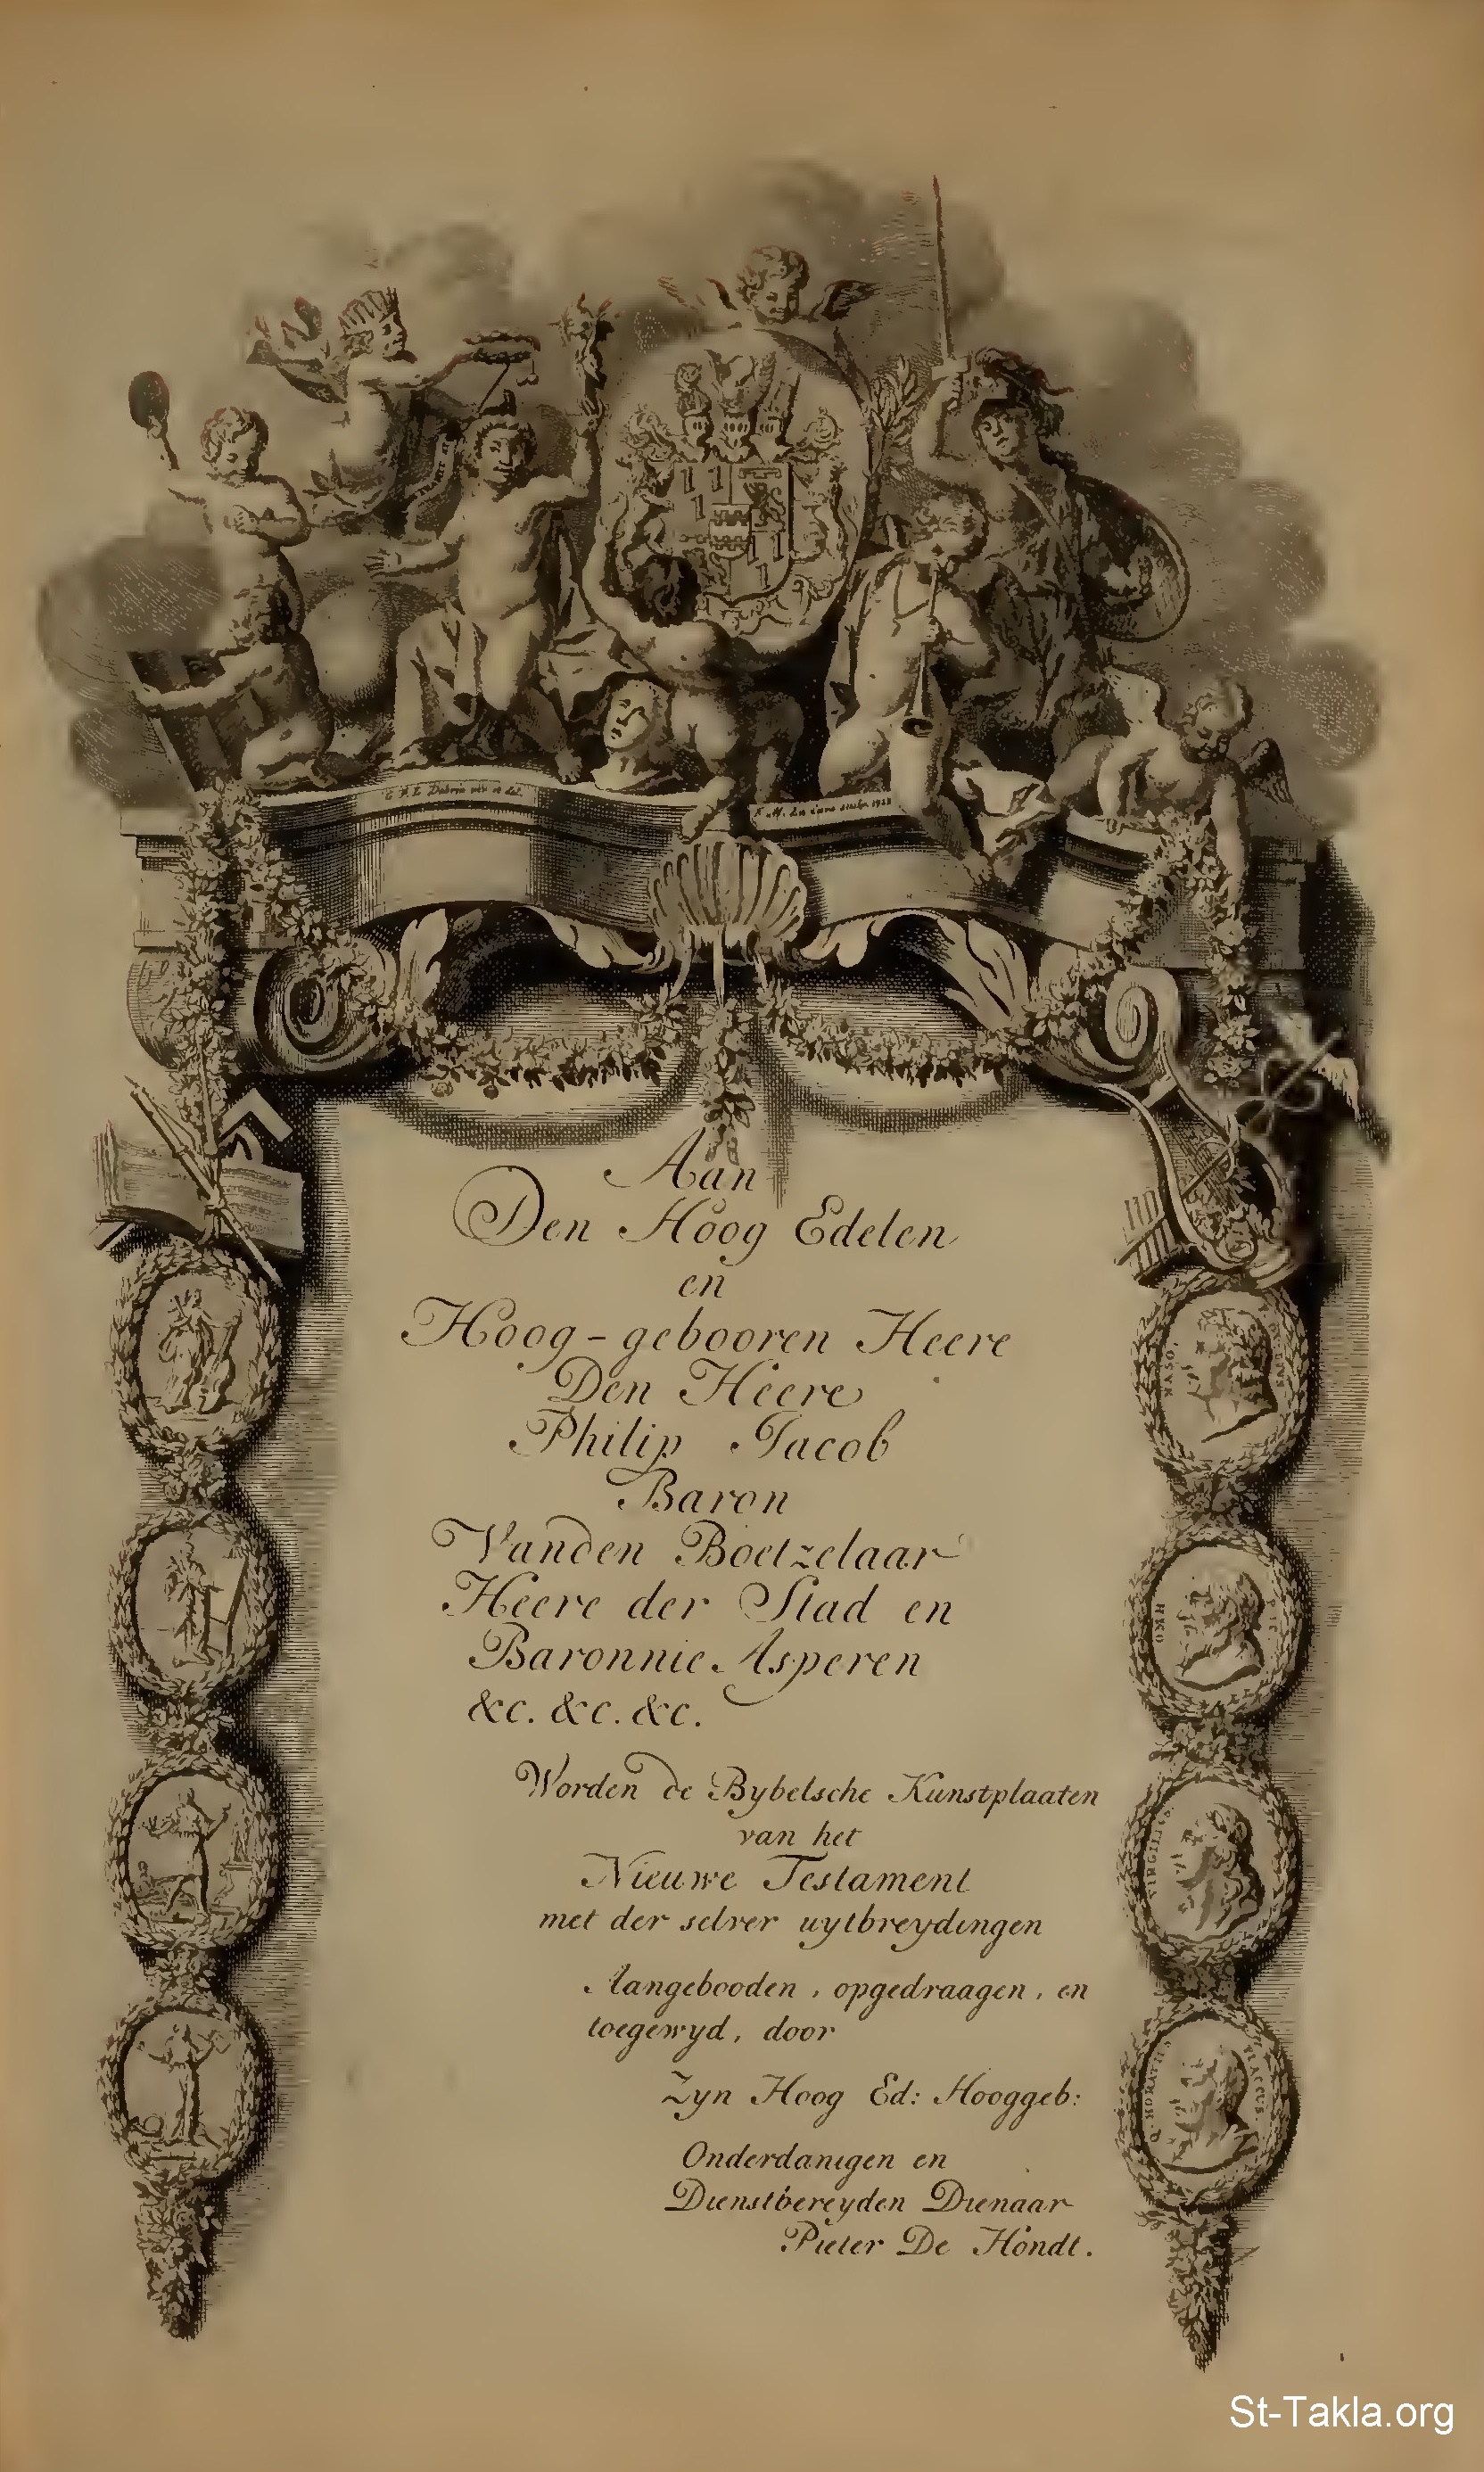 Aan
Den Hoog Edelen
en
Hoog-gebooren Heere
Den Heere
Philip Jacob
Baron
Vanden Boetzelaar
Heere der Stad en
Baronnie Asperen
&c. &c. &c.
Worden de Bybelsche Kunstplaaten
van het
Nieuwe Testament
met der selver uytbreydingen
Aangebooden, opgedraagen, en
toegewyd, door
Zyn Hoog Ed: Hooggeb:
Onderdanigen en
Dienstbereyden Dienaar
Pieter De Hondt.
NASO
VIRGILIUS
Q. HORATIUS FLACCUS
St-Takla.org